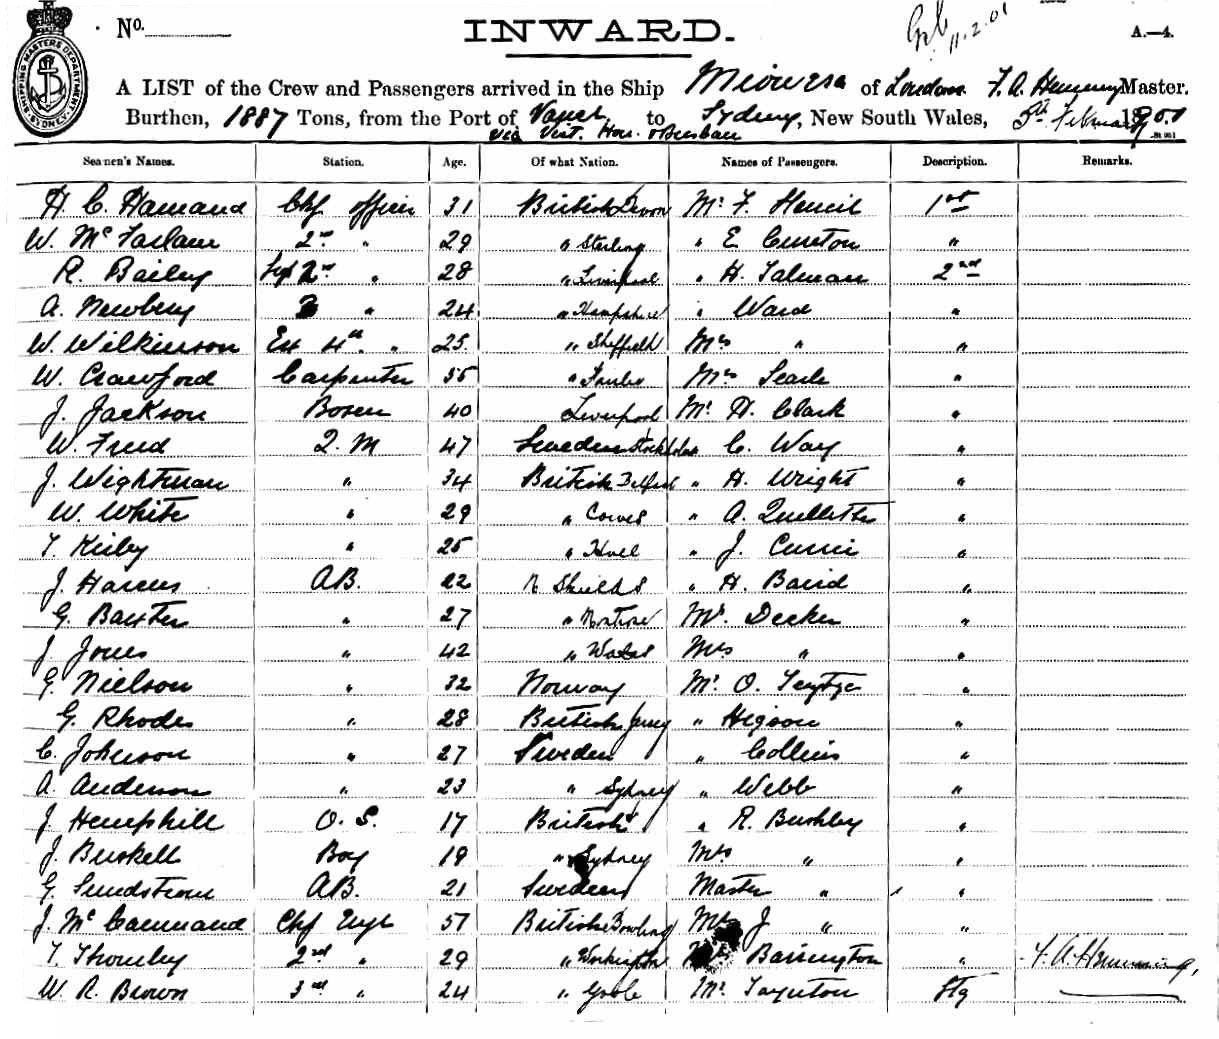 No.
INWARD.
11.2.01
A.—4.
SHIPPING MASTERS DEPARTMENT SYDNEY
A LIST of the Crew and Passengers arrived in the Ship Miowera of London F. A. Hemming Master.
Burthen, 1887 Tons, from the Port of Vancr to Sydney, New South Wales, 5th February 1901
via Vict. Hon. & Brisbane
Seamen's Names. Station. Age. Of what Nation. Names of Passengers. Description. Remarks.
H. C. Hamand Chf officer 31 British Devon Mr F. 1st
W. McFarlane 2nd " 29 " Sterling " E Cureton "
R. Bailey 2nd " 28 " Liverpool " H. Talman 2nd
A. Newbery 3 " 24 " Hampshire " Ward "
W. Wilkinson Ex 4th " 25 " Sheffield Mrs " "
W. Crawford Carpenter 35 " Mrs Searle "
J. Jackson Bosen 40 Liverpool Mr H. Clark "
W. Q. M 47 Sweden Stockholm C. Way "
J. Wightman " 34 British Belfast " H. Wright "
W. White " 29 " Cowes " A. "
T. Kirby " 25 " Hull " J. Currie "
J. Harcus AB. 22 N Shields " H. Baird "
G. Baxter " 27 " Montrose Mr. Decker "
J. Jones " 42 " Wales Mrs " "
G. Nielson " 32 Norway Mr O. "
G. Rhodes " 28 British Jersey " Higson "
C. Johnson " 27 Sweden " Collins "
A. Anderson " 23 " Sydney " Webb "
J. Hemphill O. S. 17 British " R. Bushley "
J. Buskell Boy 19 " Sydney Mrs " "
G. Sundstrom AB. 21 Sweden Master " "
J. McCammand Chf Engr 57 British Bowling J " "
T. 2nd " 29 " Workington Barrington " F. A. Hemming,
W. R. Brown 3rd " 24 " Goole Mr Taynton Stg